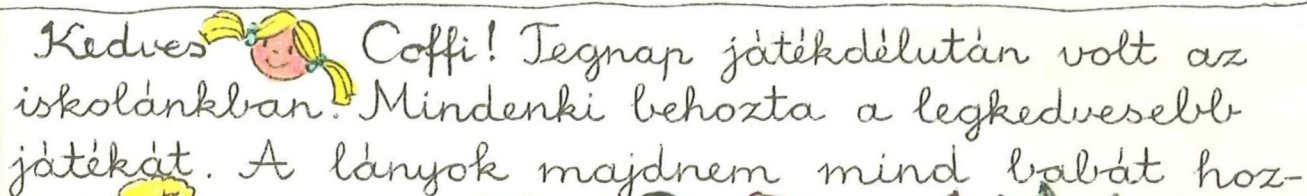 Kedves Coffi! Tegnap játékdélután volt az
iskolánkban. Mindenki behozta a legkedvesebb
játékát. A lányok majdnem mind babát hoz-